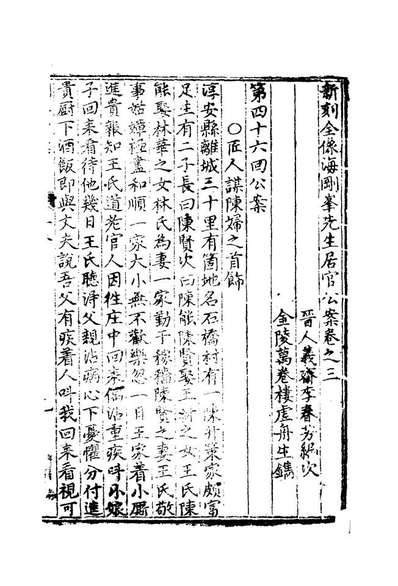 新刻全像海剛峯先生居官公案卷之三
晉人義齋李春芳編次
金陵萬卷樓虛舟生鐫
第四十六回公案
○匠人謀陳婦之首飾
淳安縣離城三十里有箇地名石橋村有一陳升策家頗富
足生有二子長曰陳賢次曰陳能陳賢娶王之女王氏陳
能娶林華之女林氏為妻一家勤于稼穡陳賢之妻王氏敬
事姑嫜極盡和順一家大小無不歡樂忽一日王家着小厮
進貴報知王氏道老官人因往庄中回來偶沾重疾呌小娘
子回来看待他幾日王氏聽淂父親沾病心下憂懼分付進
貴厨下酒飯即與丈夫說吾父有疾着人呌我回来看視可